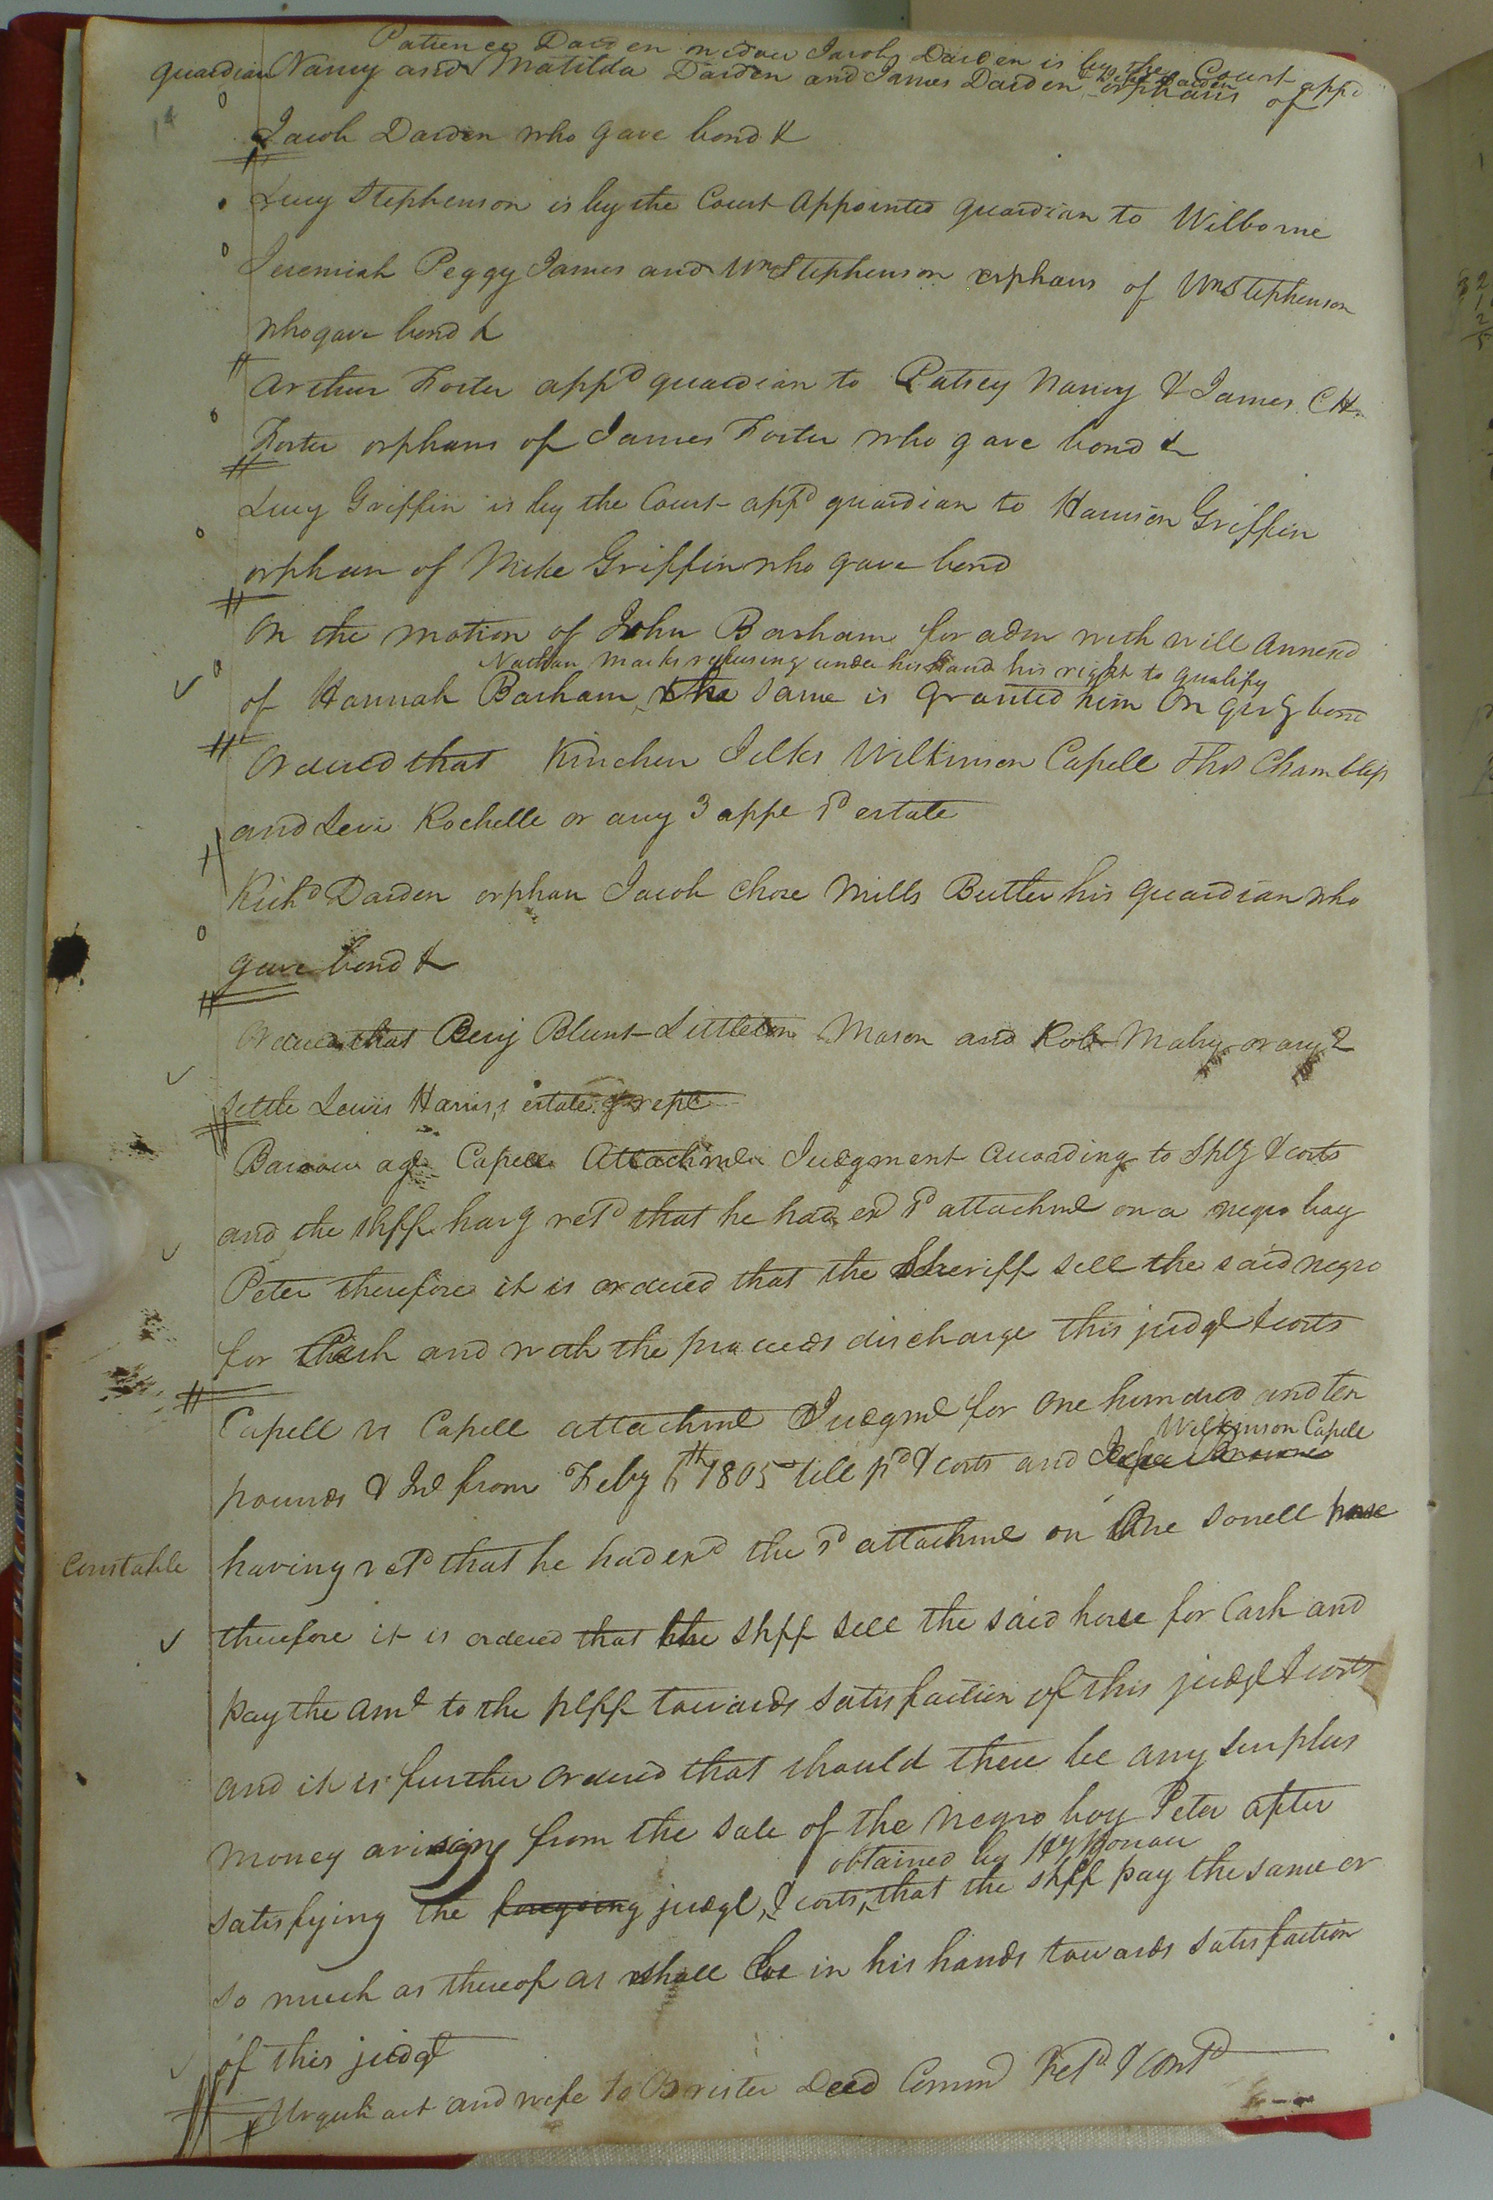 Patience Darden widow Jacob Darden is by the Court appd
guardian Nancy and Matilda Darden and James Darden orphans of
Jacob Darden who gave bond &
Lucy Stephenson is by the Court appointed guardian to Wilborne
Jeremiah Peggy James and Wm Stephenson orphans of Wm Stephenson
who gave bond &
Arthur Foster appd guardian to Patsey Nancy & James C H.
Foster orphans of James Foster who gave bond &
Lucy Griffin is by the Court appd guardian to Harrison Griffin
orphan of Mike Griffin who gave bond
On the motion of John Barham for adm with will annexd
Nathan Marks refusing under his hand his right to qualify
of Hannah Barham, the same is granted him on givg bond
Ordered that Kinchen Jelks Wilkinson Capell Thos Chambliss
and Levi Rochelle or any 3 appe sd estate
Richd Darden orphan Jacob chose Mills Butler his guardian who
gave bond &
Ordered that Benj Blunt Littleton Mason and Robt Mabry or any 2
settle Lewis Harris,s estate & rept
agt Capell Attachmt Judgment according to Splty & costs
and the shff havg retd that he had exd sd attachmt on a negro boy
Peter therefore it is ordered that the Sheriff sell the said negro
for Cash and with the proceeds discharge this judgt & costs
Capell vs Capell attachmt Judgmt for one hundred and ten
Wilkinson Capell
pounds & Int from Feby 6th 1805 till pd & costs and
Constable having retd that he had exd the sd attachmt on One sorrell horse
therefore it is ordered that the shff sell the said horse for Cash and
pay the amt to the plff towards satisfaction of this judgt & costs
and it is further ordered that should there be any surplus
money arising from the sale of the negro boy Peter after
obtained by Hy
satisfying the foregoing judgt, & costs, that the shff pay the same or
so much as thereof as shall be in his hands towards satisfaction
of this judgt
Urquhart and wife to Brister Deed Commn Retd & Contd